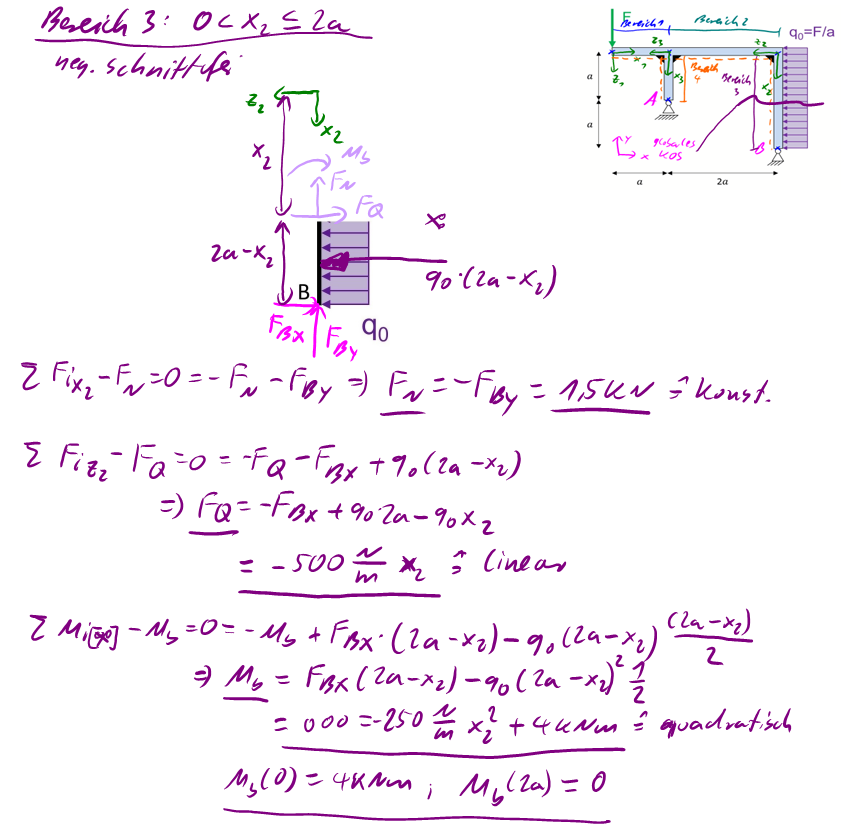 Bereich 3: 0 < x₂ ≤ 2a
neg. Schnittufer
F
Bereich 1
Bereich 2
q₀=F/a
z₃
z₂
x₁
z₁
x₃
Bereich 4
Bereich 3
x₂
a
A
a
B
y
x
globales KOS
a
2a
z₂
x₂
x₂
M_b
F_N
F_Q
2a-x₂
q₀·(2a-x₂)
B
F_Bx
F_By
q₀
Σ F_ix₂ - F_N = 0 = -F_N - F_By ⇒ F_N = -F_By = 1,5kN ≙ konst.
Σ F_iz₂ - F_Q = 0 = -F_Q - F_Bx + q₀(2a-x₂)
⇒ F_Q = -F_Bx + q₀2a - q₀x₂
= -500 N/m x₂ ≙ linear
- M_b = 0 = -M_b + F_Bx·(2a-x₂) - q₀(2a-x₂) (2a-x₂)/2
⇒ M_b = F_Bx(2a-x₂) - q₀(2a-x₂)² 1/2
= ooo = -250 N/m x₂² + 4kNm ≙ quadratisch
M_b(0) = 4kNm ; M_b(2a) = 0